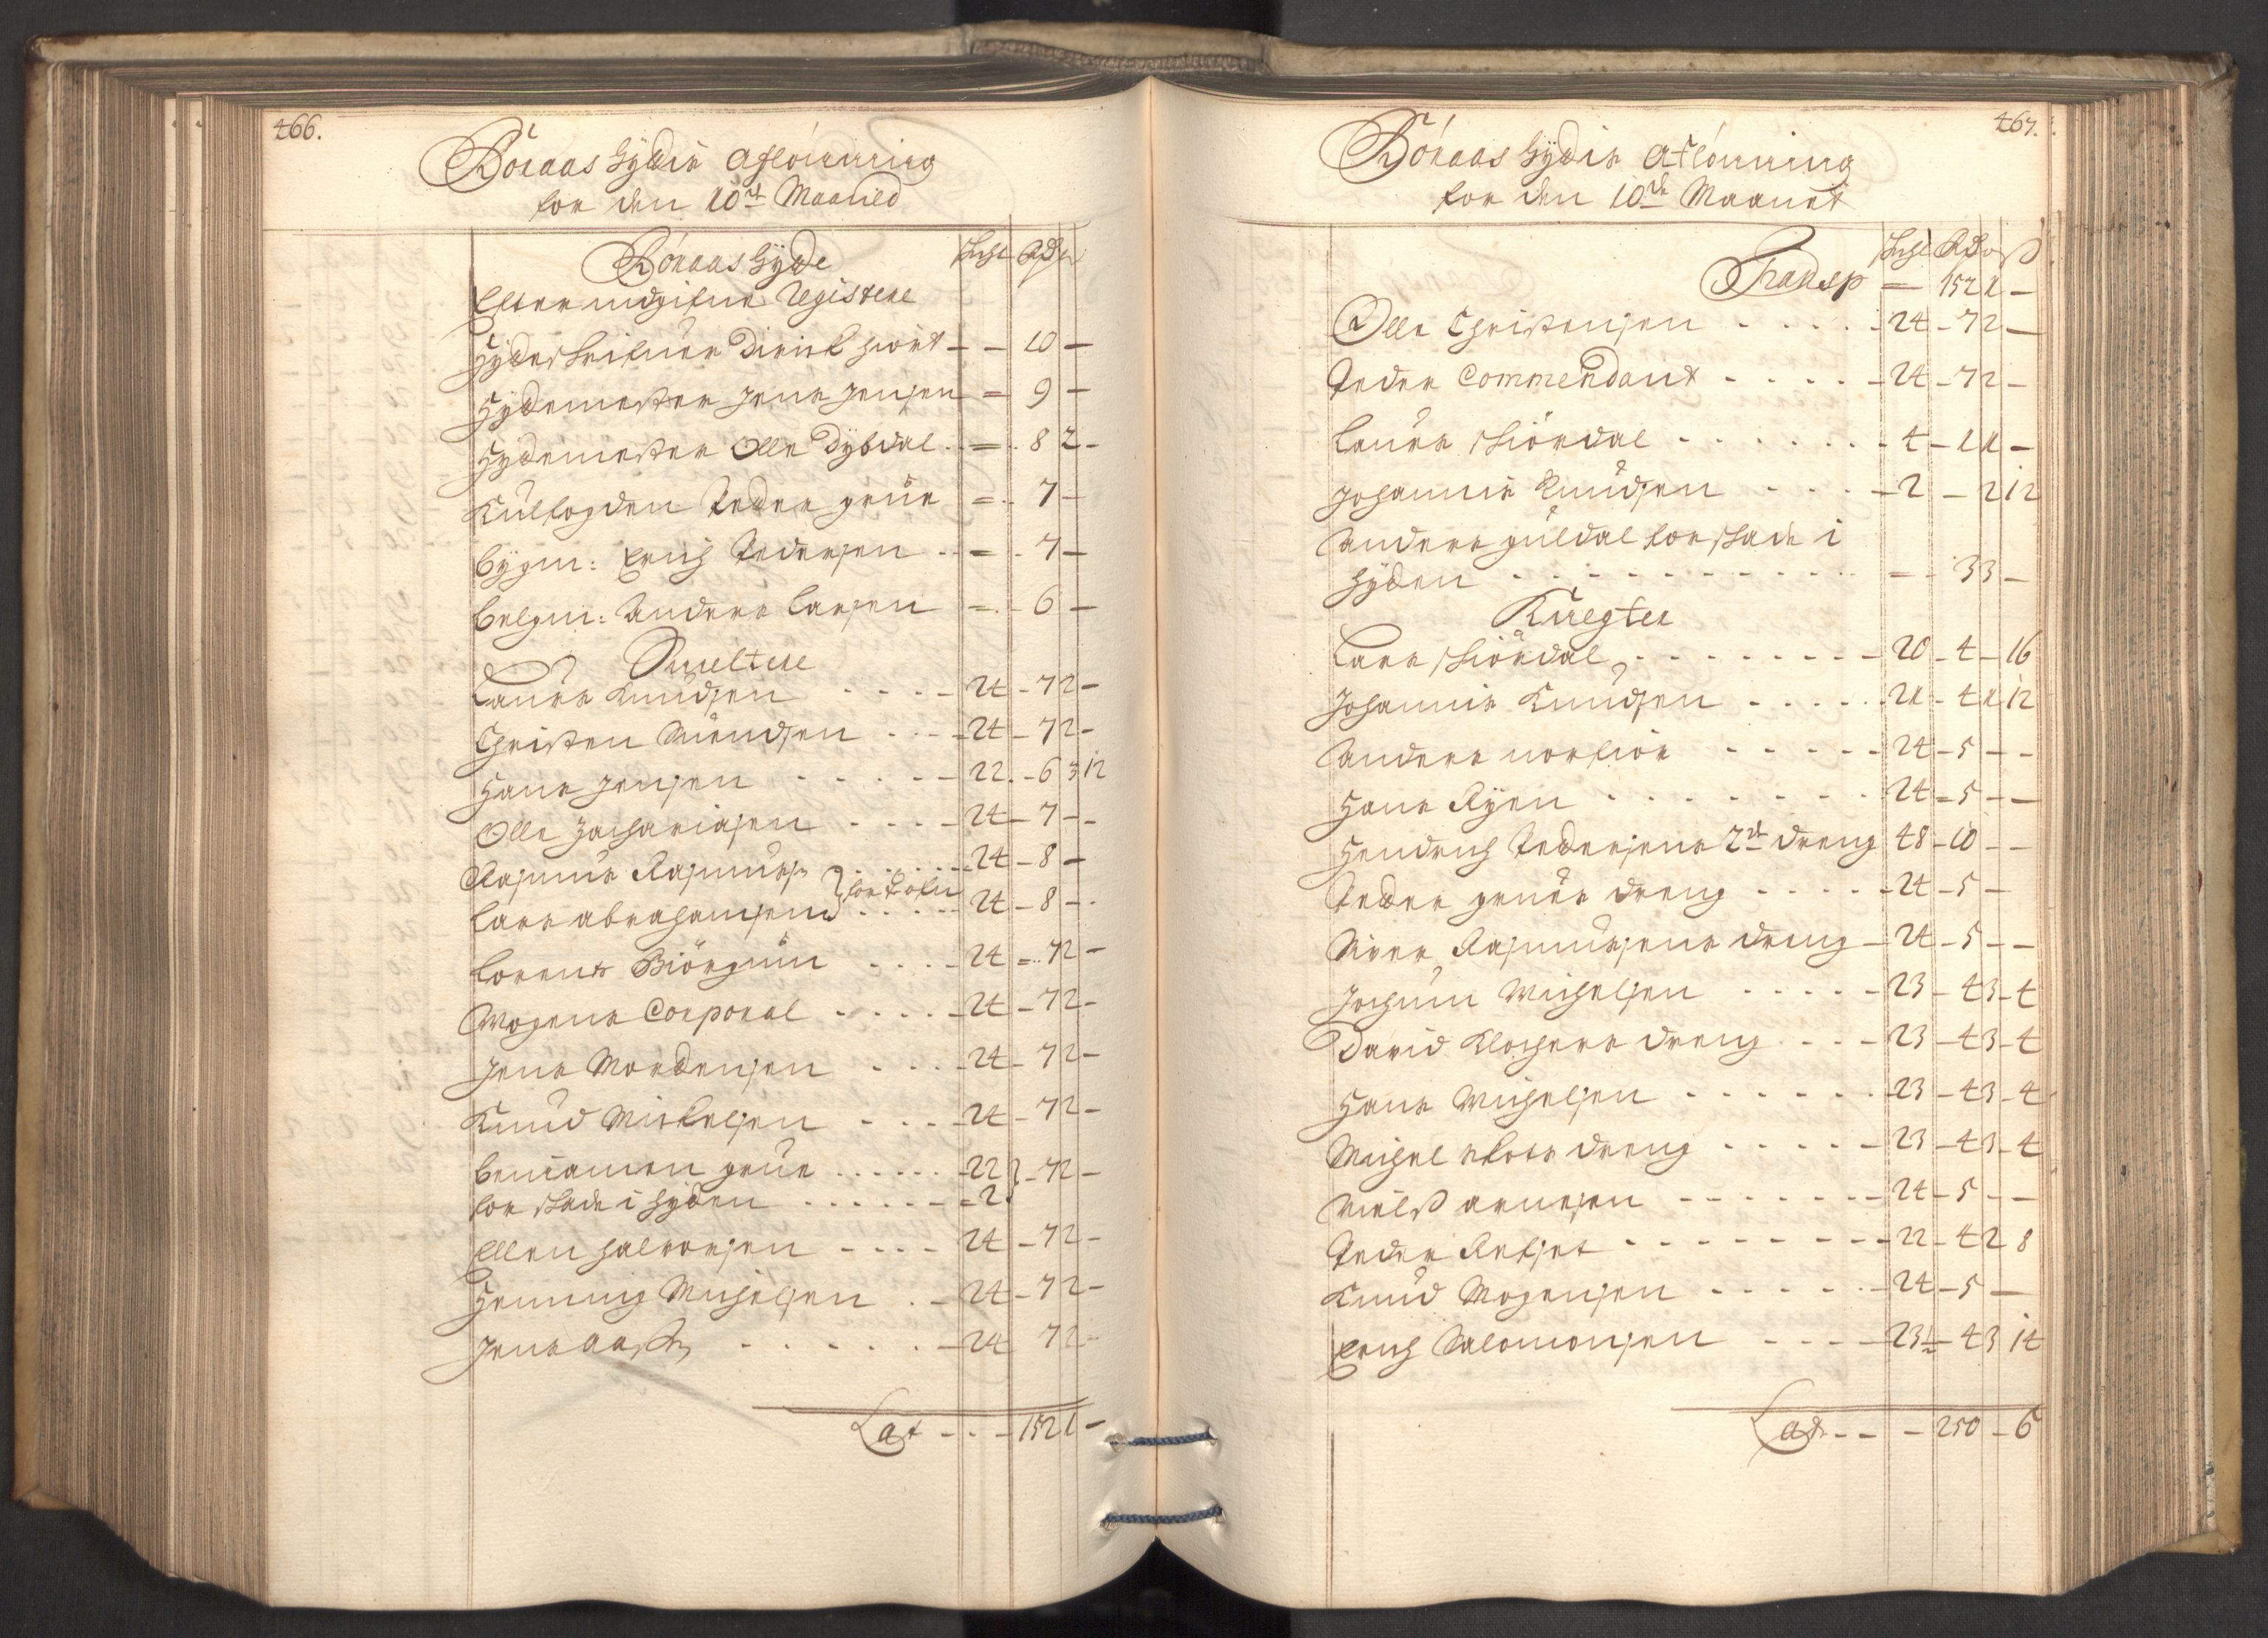 466.
Röraas Hÿttis Aflönning
for den 10de Maaned
Röraas Hÿtte
Schl Rdr
Efter indgifne Registere
Hÿtteskrifuer Dirich Hiort - - 10 -
Hÿttemester Jens Jensen = 9 -
Hÿttemester Olle Dÿbdal . = . 8 2 -
Kulfogden Peder grüe = . 7 -
Bÿgm: Erich Pedersen . = . 7 -
Belgm: Anders Larsen = . 6 -
Smeltere
Laurs Knudsen - - - - 24 - 7 2 -
Christen Suendsen - - - 24 - 7 2 -
Hans Jensen - - - - - 22. - 6 3 12
Olle Zachariasen - - - - 24 - 7 - -
Rasmus Rasmuss: . . . . 24 - 8 -
Lars abrahamsen . . . . 24 - 8 - .
Lorens Biörgum - - - - 24 = 7 2 -
Mogens Corporal - - - - 24 - 7 2 -
Jens Mordensen - - - 24 - 7 2 -
Knud Mickelsen - - - 24 - 7 2 -
Beniamen grüe . . . . . . 22 } - 7 2 -
for skade i hÿtten . . . . . . = 2
Ellen Halvorsen - - - - 24 - 7 2 -
Henning Michelsen . - 24 - 7 2 -
Jens - - - - - - 24 7 2 -
Lat - - - 152 1 -
467.
Röraas Hÿttis Aflönning
for den 10de Maanet
Schl Rdr ort ß
Transp = 152 1 -
Olle Christensen - - - - - 24 - 7 2 -
Peder Commendant - - - - - 24 - 7 2 -
Laurs Stiördal - - - - - - - 4 - 1 1 -
Johannis Knudsen - - - - 2 - 2 12
Anders guldal for skade i
hÿtten - - - - - - - - - - - - = - 3 3 -
Knegter
Lars Stiördal - - - - - - - - 20 - 4 - 16
Johannis Knudsen - - - - - - 21 - 4 1 12
Anders norfiör - - - - - 24 - 5 - -
Hans Rÿen - - - - - - - - 24 = 5 - -
Hendrich Pedersens 2de dreng 48 - 10 - -
Peder grüis dreng - - - - - 24 - 5 -
Siver Rasmusens dreng - 24 - 5 - -
Jochum Michelsen - - - - - 23 - 4 3 - 4
David Klochers dreng - - - - 23 - 4 3 - 4
Hans Michelsen - - - - - - - 23 - 4 3 - 4
Michel dreng - - - - - 23 - 4 3 - 4
Nielß arnesen - - - - - - - 24 - 5 - -
Peder - - - - - - - - 22 - 4 2 8
Knud Mogensen - - - - - - 24 - 5 -
Erich Salomonsen - - - - 23½ - 4 3 14
Lat - - - 250 - 6